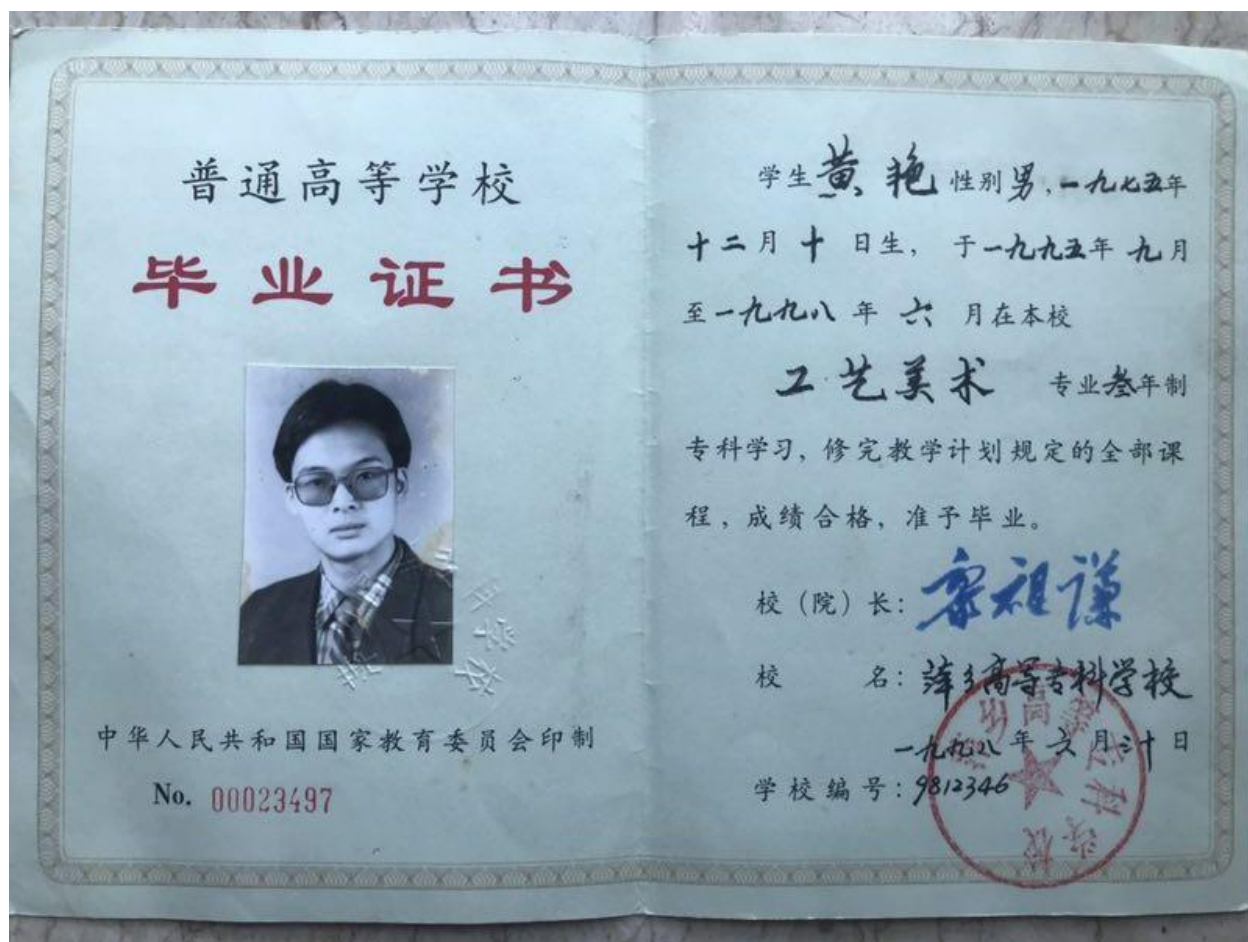 普通高等学校
毕业证书
中华人民共和国国家教育委员会印制
No. 00023497
学生黄艳性别男,一九七五年
十二月十日生, 于一九九五年九月
至一九九八年六月在本校
工艺美术 专业叁年制
专科学习, 修完教学计划规定的全部课
程, 成绩合格, 准予毕业。
校(院)长: 廖祖谦
校名: 萍乡高等专科学校
一九九八年六月三十日
学校编号: 9812346